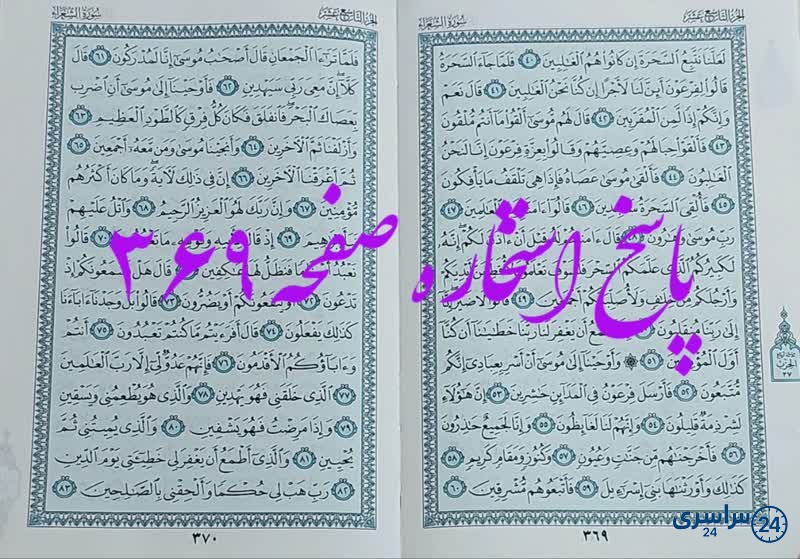 الجزء التاسع عشر
سورة الشعراء
لَعَلَّنَا نَتَّبِعُ السَّحَرَةَ إِن كَانُوا هُمُ الْغَٰلِبِينَ ٤٠ فَلَمَّا جَاءَ السَّحَرَةُ
قَالُوا لِفِرْعَوْنَ أَئِنَّ لَنَا لَأَجْرًا إِن كُنَّا نَحْنُ الْغَٰلِبِينَ ٤١ قَالَ نَعَمْ
وَإِنَّكُمْ إِذًا لَّمِنَ الْمُقَرَّبِينَ ٤٢ قَالَ لَهُم مُّوسَىٰ أَلْقُوا مَا أَنتُم مُّلْقُونَ
٤٣ فَأَلْقَوْا حِبَالَهُمْ وَعِصِيَّهُمْ وَقَالُوا بِعِزَّةِ فِرْعَوْنَ إِنَّا لَنَحْنُ
الْغَٰلِبُونَ ٤٤ فَأَلْقَىٰ مُوسَىٰ عَصَاهُ فَإِذَا هِيَ تَلْقَفُ مَا يَأْفِكُونَ
٤٥ فَأُلْقِيَ السَّحَرَةُ سَٰجِدِينَ ٤٦ قَالُوا ءَامَنَّا الْعَٰلَمِينَ ٤٧
رَبِّ مُوسَىٰ وَهَٰرُونَ ٤٨ قَالَ ءَامَنتُمْ لَهُ قَبْلَ أَنْ ءَاذَنَ لَكُمْ إِنَّهُ
لَكَبِيرُكُمُ الَّذِي عَلَّمَكُمُ السِّحْرَ فَلَسَوْفَ تَعْلَمُونَ لَأُقَطِّعَنَّ أَيْدِيَكُمْ
وَأَرْجُلَكُم مِّنْ خِلَٰفٍ وَلَأُصَلِّبَنَّكُمْ أَجْمَعِينَ ٤٩ قَالُوا لَا ضَيْرَ
إِلَىٰ رَبِّنَا مُنقَلِبُونَ أَن يَغْفِرَ لَنَا رَبُّنَا خَطَٰيَٰنَا أَن كُنَّا
أَوَّلَ الْمُؤْمِنِينَ ٥١ وَأَوْحَيْنَا إِلَىٰ مُوسَىٰ أَنْ أَسْرِ بِعِبَادِي إِنَّكُم
مُّتَّبَعُونَ ٥٢ فَأَرْسَلَ فِرْعَوْنُ فِي الْمَدَائِنِ حَٰشِرِينَ ٥٣ إِنَّ هَٰؤُلَاءِ
لَشِرْذِمَةٌ قَلِيلُونَ ٥٤ وَإِنَّهُمْ لَنَا لَغَائِظُونَ ٥٥ وَإِنَّا لَجَمِيعٌ حَٰذِرُونَ
٥٦ فَأَخْرَجْنَٰهُم مِّن جَنَّٰتٍ وَعُيُونٍ ٥٧ وَكُنُوزٍ وَمَقَامٍ كَرِيمٍ ٥٨
كَذَٰلِكَ وَأَوْرَثْنَٰهَا بَنِي إِسْرَٰءِيلَ ٥٩ فَأَتْبَعُوهُم مُّشْرِقِينَ ٦٠
٣٦٩
الحزب
٣٧
الجزء التاسع عشر
سورة الشعراء
فَلَمَّا تَرَٰءَا الْجَمْعَانِ قَالَ أَصْحَٰبُ مُوسَىٰ إِنَّا لَمُدْرَكُونَ ٦١ قَالَ
كَلَّا إِنَّ مَعِيَ رَبِّي سَيَهْدِينِ ٦٢ فَأَوْحَيْنَا إِلَىٰ مُوسَىٰ أَنِ اضْرِب
بِّعَصَاكَ الْبَحْرَ فَانفَلَقَ فَكَانَ كُلُّ فِرْقٍ كَالطَّوْدِ الْعَظِيمِ ٦٣
وَأَزْلَفْنَا ثَمَّ الْآخَرِينَ ٦٤ وَأَنجَيْنَا مُوسَىٰ وَمَن مَّعَهُ أَجْمَعِينَ ٦٥
ثُمَّ أَغْرَقْنَا الْآخَرِينَ ٦٦ إِنَّ فِي ذَٰلِكَ لَآيَةً وَمَا كَانَ أَكْثَرُهُم
مُّؤْمِنِينَ ٦٧ وَإِنَّ رَبَّكَ لَهُوَ الْعَزِيزُ الرَّحِيمُ ٦٨ وَاتْلُ عَلَيْهِمْ
إِبْرَٰهِيمَ ٦٩ إِذْ قَالَ لِأَبِيهِ وَقَوْمِهِ مَا تَعْبُدُونَ ٧٠ قَالُوا
نَعْبُدُ أَصْنَامًا فَنَظَلُّ لَهَا عَٰكِفِينَ قَالَ هَلْ يَسْمَعُونَكُمْ إِذْ
تَدْعُونَ ٧٢ أَوْ يَنفَعُونَكُمْ أَوْ يَضُرُّونَ ٧٣ قَالُوا بَلْ وَجَدْنَا ءَابَاءَنَا
كَذَٰلِكَ يَفْعَلُونَ ٧٤ قَالَ أَفَرَءَيْتُم مَّا كُنتُمْ تَعْبُدُونَ ٧٥ أَنتُمْ
وَءَابَاؤُكُمُ الْأَقْدَمُونَ ٧٦ فَإِنَّهُمْ عَدُوٌّ لِّي إِلَّا رَبَّ الْعَٰلَمِينَ
٧٧ الَّذِي خَلَقَنِي فَهُوَ يَهْدِينِ ٧٨ وَالَّذِي هُوَ يُطْعِمُنِي وَيَسْقِينِ
٧٩ وَإِذَا مَرِضْتُ فَهُوَ يَشْفِينِ ٨٠ وَالَّذِي يُمِيتُنِي ثُمَّ
يُحْيِينِ ٨١ وَالَّذِي أَطْمَعُ أَن يَغْفِرَ لِي خَطِيئَتِي يَوْمَ الدِّينِ
٨٢ رَبِّ هَبْ لِي حُكْمًا وَأَلْحِقْنِي بِالصَّٰلِحِينَ ٨٣
٣٧٠
پاسخ استخاره صفحه ۳۶۹
سراسری 24
24